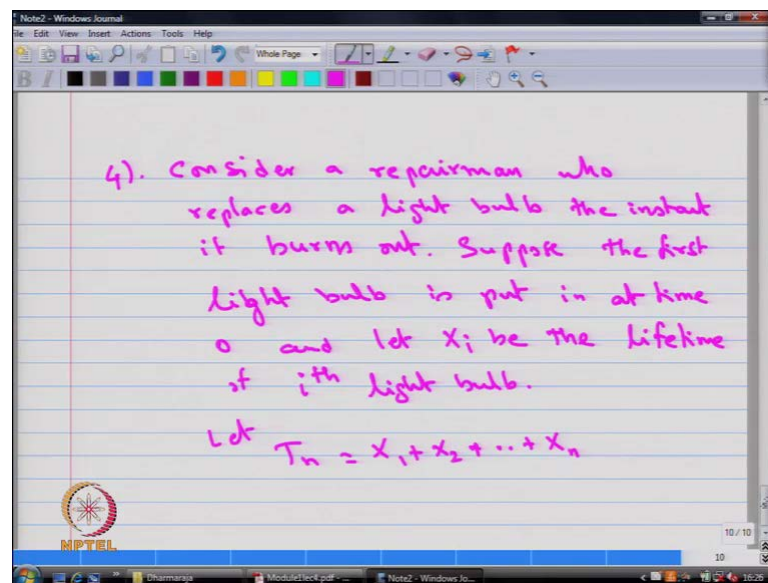 Note2 - Windows Journal
File Edit View Insert Actions Tools Help
Whole Page
B I
4). Consider a repairman who
replaces a light bulb the instant
it burns out. Suppose the first
light bulb is put in at time
0 and let Xi be the lifetime
of ith light bulb.
Let Tn = X1 + X2 + .. + Xn
NPTEL
10 / 10
10
Dharmaraja Module1lec4.pdf - ... Note2 - Windows Jo... 16:26